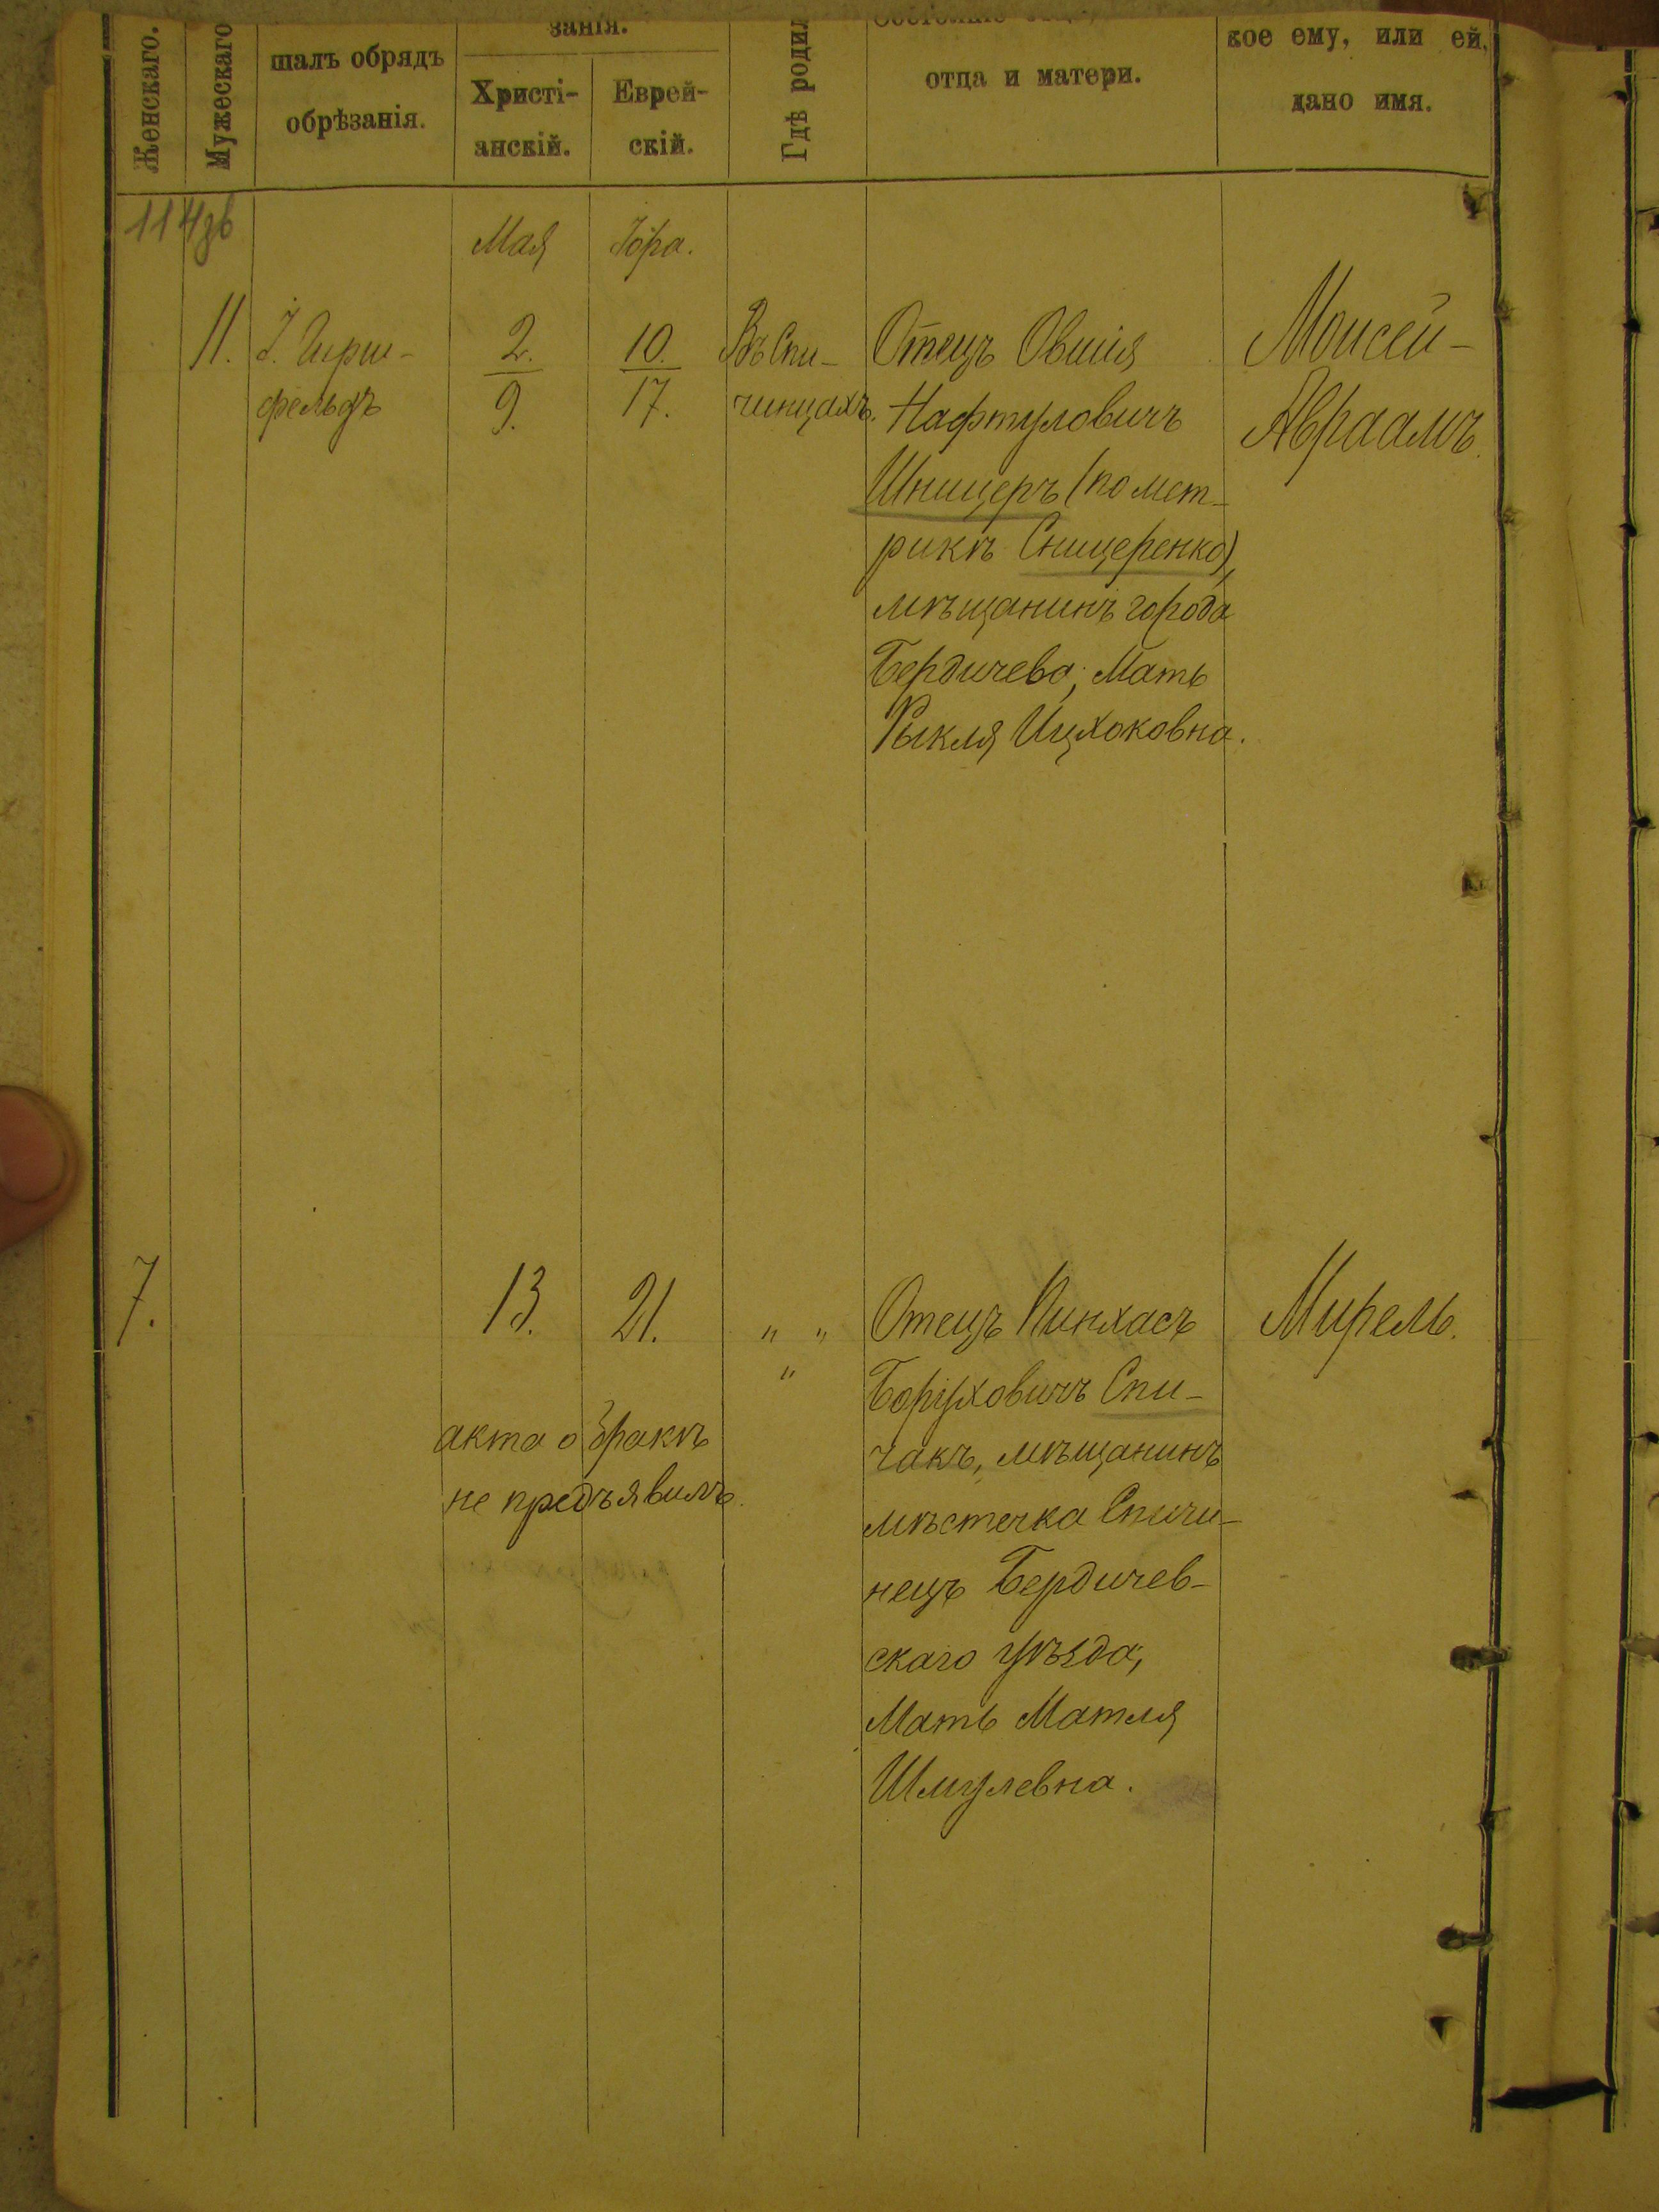 Женскаго.
Мужескаго
шалъ обрядъ
обрѣзанія.
занія.
Христі-
анскій.
Еврей-
скій.
Гдѣ родил
отца и матери.
кое ему, или ей,
дано имя.
114зв
Мая
Іора.
11.
І. Гирш-
фельдъ
2.
9.
10.
17.
Въ Спи-
чинцахъ.
Отецъ Овшія
Нафтуловичъ
Шницеръ (по мет-
рикѣ Сницеренко),
мѣщанинъ города
Бердичева; Мать
Рыкля Ицхоковна.
Моисей-
Авраамъ.
7.
13.
21.
" "
"
акта о бракѣ
не предъявилъ.
Отецъ Пинхасъ
Боруховичъ Спи-
чакъ, мѣщанинъ
мѣстечка Спичи-
нецъ Бердичев-
скаго уѣзда;
Мать Матля
Шмулевна.
Мирель.